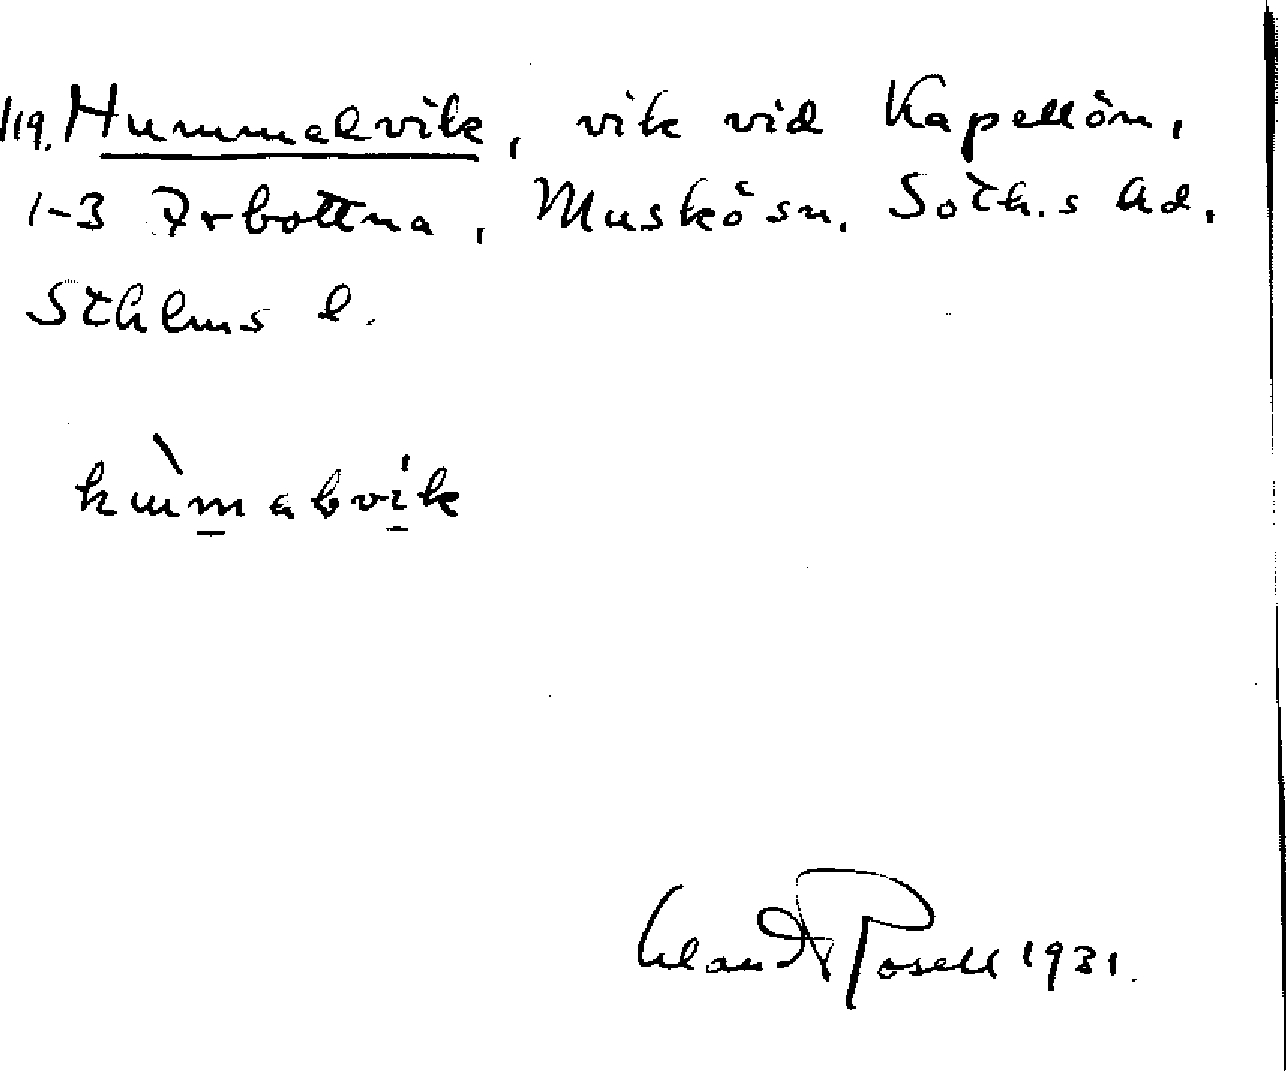 /19. Hummelvik, vik vid Kapellön,
1-3 Arbottna, Muskö sn. Soth.s hd.
Sthlms l.
hùmabvik
Rosell 1931.